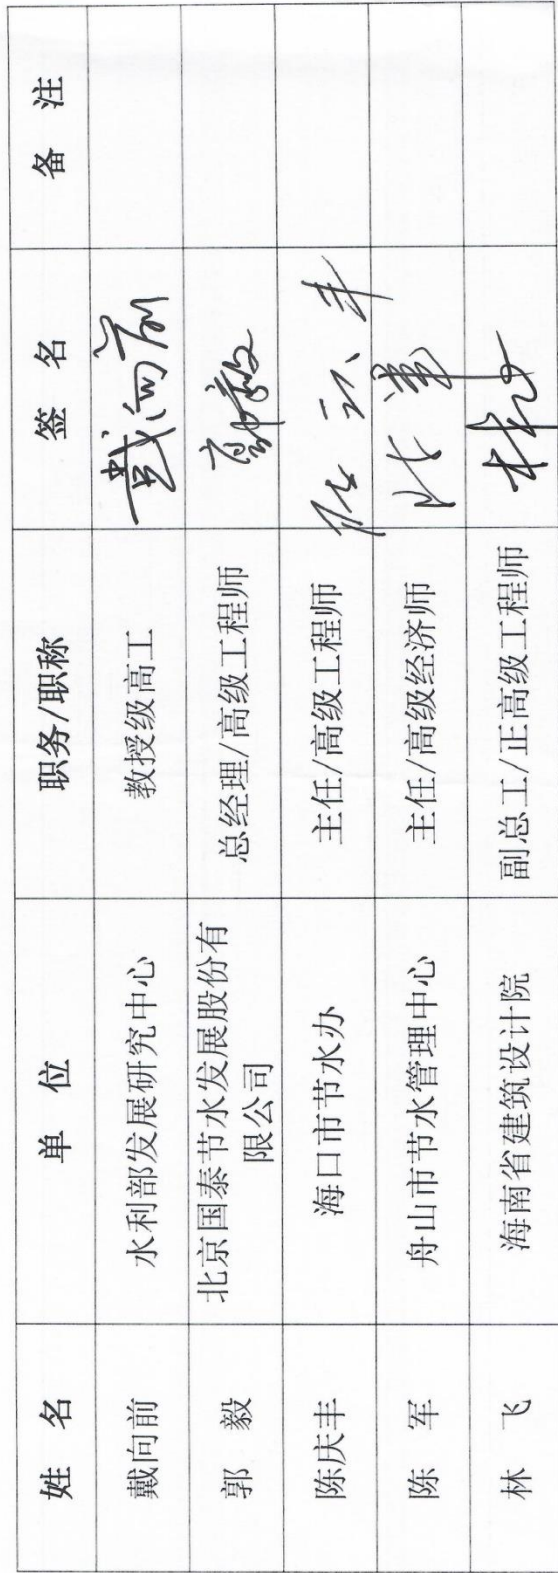 姓 名 单 位 职务/职称 签 名 备 注
戴向前 水利部发展研究中心 教授级高工 戴向前
郭 毅 北京国泰节水发展股份有 总经理/高级工程师 郭毅
限公司
陈庆丰 海口市节水办 主任/高级工程师 陈庆丰
陈 军 舟山市节水管理中心 主任/高级经济师 陈军
林 飞 海南省建筑设计院 副总工/正高级工程师 林飞